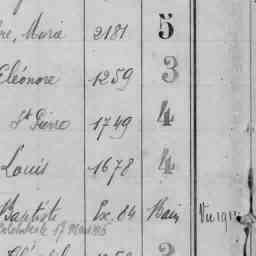 re, Marie 2181 5
Eléonore 1259 3
St Pierre 1749 4
Louis 1678 4
Baptiste Ex. 84 Bain
3